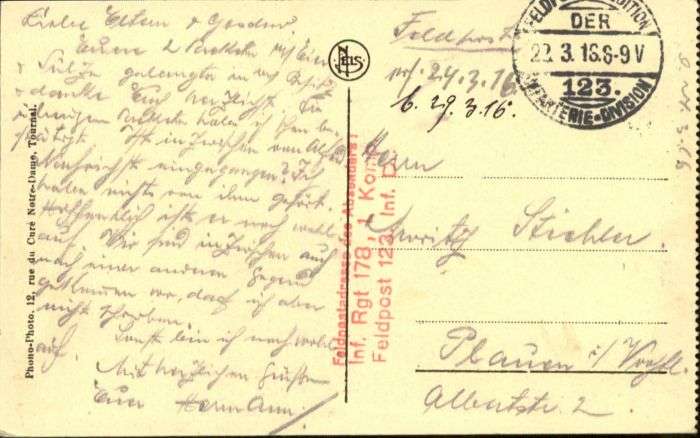 Liebe Eltern u. Geschw.
Eure 2 Paketchen mit Eier
u Sülze gelangten in m/ Besitz
u danke Euch herzlichst. Die
übrigen Paketchen habe ich schon be
stätigt. Ist inzwischen von Alfred
Nachricht eingegangen? Ich
habe nichts von ihm gehört.
Hoffentlich ist er noch wohl-
auf. Wir sind inzwischen auch
nach einer anderen Gegend
gekommen wo, darf ich aber
nicht schreiben.
Sonst bin ich noch wohl
auf.
Mit herzlichen Grüßen
Euer Hermann.
Phono-Photo. 12, rue du Curé Notre-Dame, Tournai.
Nels
Feldpostadresse des Absenders:
Inf. Rgt 178, 1 Kom
Feldpost 123. Inf. D
Feldpost
DER
22.3.16.8-9V
123.
INFANTERIE-DIVISION
24.3.16.
b. 29.3.16.
Herrn
Moritz Stichler.
Plauen i/ Vogtl.
Albertstr. 2